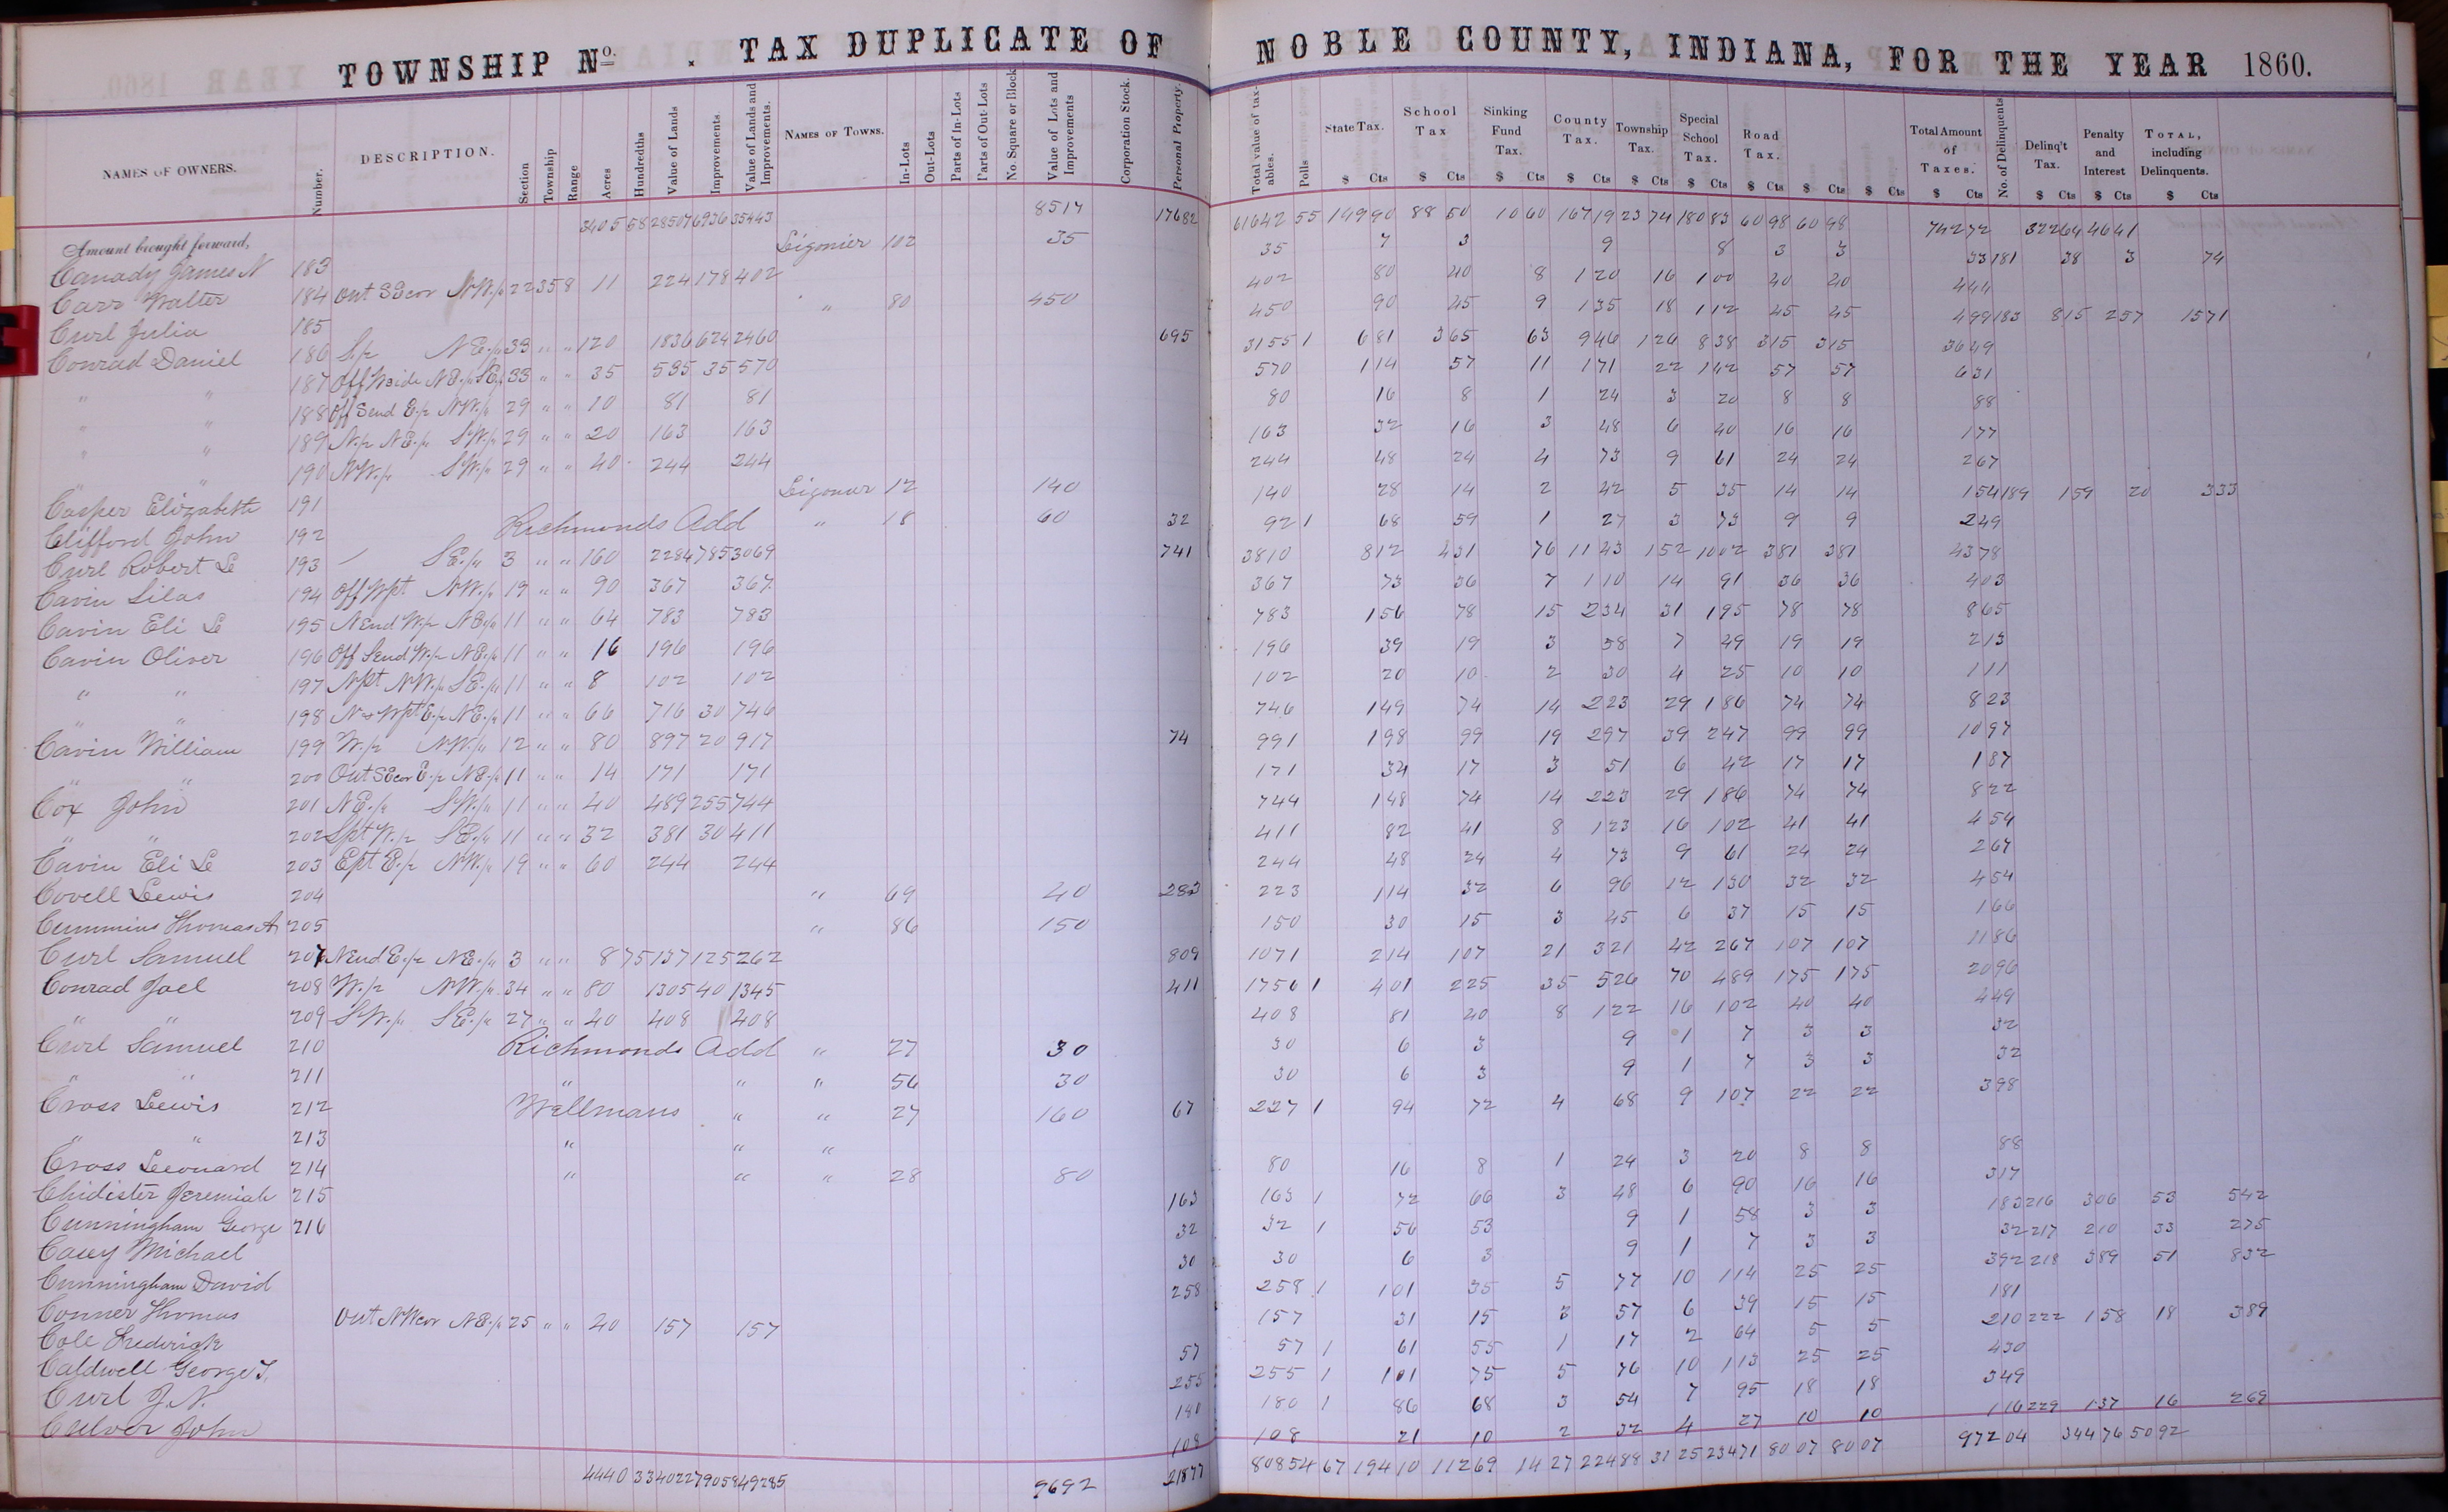 TOWNSHIP No. . TAX DUPLICATE OF NOBLE COUNTY, INDIANA, FOR THE YEAR 1860.
NAMES OF OWNERS. Number. DESCRIPTION. Section Township Range Acres Hundredths Value of Lands Improvements Value of Lands and Improvements. NAMES OF TOWNS. In-Lots Out-Lots Parts of In-Lots Parts of Out-Lots No. Square or Block Value of Lots and Improvements Corporation Stock. Personal Property. Total value of taxables. Polls State Tax. School Tax Sinking Fund Tax. County Tax. Township Tax. Special School Tax. Road Tax. Total Amount of Taxes. No. of Delinquents Delinq't Tax. Penalty and Interest TOTAL, including Delinquents.
$ Cts $ Cts $ Cts $ Cts $ Cts $ Cts $ Cts $ Cts $ Cts $ Cts $ Cts $ Cts $ Cts
Amount brought forward, 3405 58 28507 6936 35443 8517 17682 61642 55 149 90 88 50 10 60 167 19 23 74 180 83 60 98 60 98 742 72 322 64 46 41
Canady James N 183 Ligonier 102 35 35 7 3 9 8 3 3 33 181 38 3 74
Carr Walter 184 Out SEcor NW 1/4 22 35 8 11 224 178 402 402 80 40 8 1 20 16 1 00 40 40 4 44
Curl Julia 185 " 80 450 450 90 45 9 1 35 18 1 12 45 45 4 99 183 8 15 2 57 15 71
Conrad Daniel 186 S 1/2 NE 1/4 33 " " 120 1836 624 2460 695 3155 1 6 81 3 65 63 9 46 1 26 8 38 3 15 3 15 36 49
" " 187 Off W side NE 1/4 SE 1/4 33 " " 35 535 35 570 570 1 14 57 11 1 71 22 1 42 57 57 6 31
" " 188 Off S end E 1/2 NW 1/4 29 " " 10 81 81 80 16 8 1 24 3 20 8 8 88
" " 189 N 1/2 NE 1/4 SW 1/4 29 " " 20 163 163 163 32 16 3 48 6 40 16 16 1 77
" " 190 NW 1/4 SW 1/4 29 " " 40 244 244 244 48 24 4 73 9 61 24 24 2 67
Casper Elizabeth 191 Ligonier 12 140 140 28 14 2 42 5 35 14 14 1 54 189 1 59 20 3 33
Clifford John 192 Richmonds Add " 18 60 32 92 1 68 59 1 27 3 73 9 9 2 49
Curl Robert L 193 SE 1/4 3 " " 160 2284 785 3069 741 3810 8 12 4 31 76 11 43 1 52 10 02 3 81 3 81 43 78
Cavin Silas 194 Off W pt NW 1/4 19 " " 90 367 367 367 73 36 7 1 10 14 91 36 36 4 03
Cavin Eli L 195 N end W 1/2 NE 1/4 11 " " 64 783 783 783 1 56 78 15 2 34 31 1 95 78 78 8 65
Cavin Oliver 196 Off S end W 1/2 NE 1/4 11 " " 16 196 196 196 39 19 3 58 7 49 19 19 2 13
" " 197 N pt NW 1/4 SE 1/4 11 " " 8 102 102 102 20 10 2 30 4 25 10 10 1 11
" " 198 N & W pt E 1/2 NE 1/4 11 " " 66 716 30 746 746 1 49 74 14 2 23 29 1 86 74 74 8 23
Cavin William 199 W 1/2 NW 1/4 12 " " 80 897 20 917 74 991 1 98 99 19 2 97 39 2 47 99 99 10 97
" " 200 Out SEcor E 1/2 NE 1/4 11 " " 14 171 171 171 34 17 3 51 6 42 17 17 1 87
Cox John 201 NE 1/4 SW 1/4 11 " " 40 489 255 744 744 1 48 74 14 2 23 29 1 86 74 74 8 22
" " 202 S pt W 1/2 SE 1/4 11 " " 32 381 30 411 411 82 41 8 1 23 16 1 02 41 41 4 54
Cavin Eli L 203 E pt E 1/2 NW 1/4 19 " " 60 244 244 244 48 24 4 73 9 61 24 24 2 67
Covell Lewis 204 " 69 40 283 223 1 14 32 6 96 12 1 30 32 32 4 54
Cummins Thomas A 205 " 86 150 150 30 15 3 45 6 37 15 15 1 66
Curl Samuel 207 N end E 1/2 NE 1/4 3 " " 8 75 137 125 262 809 1071 2 14 1 07 21 3 21 42 2 67 1 07 1 07 11 86
Conrad Joel 208 W 1/2 NW 1/4 34 " " 80 1305 40 1345 411 1756 1 4 01 2 25 35 5 26 70 4 89 1 75 1 75 20 96
" " 209 SW 1/4 SE 1/4 27 " " 40 408 408 408 81 40 8 1 22 16 1 02 40 40 4 49
Curl Samuel 210 Richmonds Add " 27 30 30 6 3 9 1 7 3 3 32
" " 211 " " " 56 30 30 6 3 9 1 7 3 3 32
Cross Lewis 212 Wellmans " " 27 160 67 227 1 94 72 4 68 9 1 07 22 22 3 98
" " 213 " " "
Cross Leonard 214 " " " 28 80 80 16 8 1 24 3 20 8 8 88
Chidister Jeremiah 215 163 163 1 72 66 3 48 6 90 16 16 3 17
Cunningham George 216 32 32 1 56 53 9 1 58 3 3 1 83 216 3 06 53 5 42
Casey Michael 30 30 6 3 9 1 7 3 3 32 217 2 10 33 2 75
Cunningham David 258 258 1 1 01 35 5 77 10 1 14 25 25 3 92 218 3 89 51 8 32
Conner Thomas Out NWcor NE 1/4 25 " " 40 157 157 157 31 15 3 57 6 39 15 15 1 81
Cole Frederick 57 57 1 61 55 1 17 2 64 5 5 2 10 222 1 58 18 3 89
Caldwell George T. 255 255 1 1 01 75 5 76 10 1 13 25 25 4 30
Curl J. N. 180 180 1 86 68 3 54 7 95 18 18 3 49
Culver John 108 108 21 10 2 32 4 27 10 10 1 16 229 1 37 16 2 69
4440 33 40227 9058 49285 9692 21877 80854 67 194 10 112 69 14 27 224 88 31 25 234 71 80 07 80 07 972 04 344 76 50 92